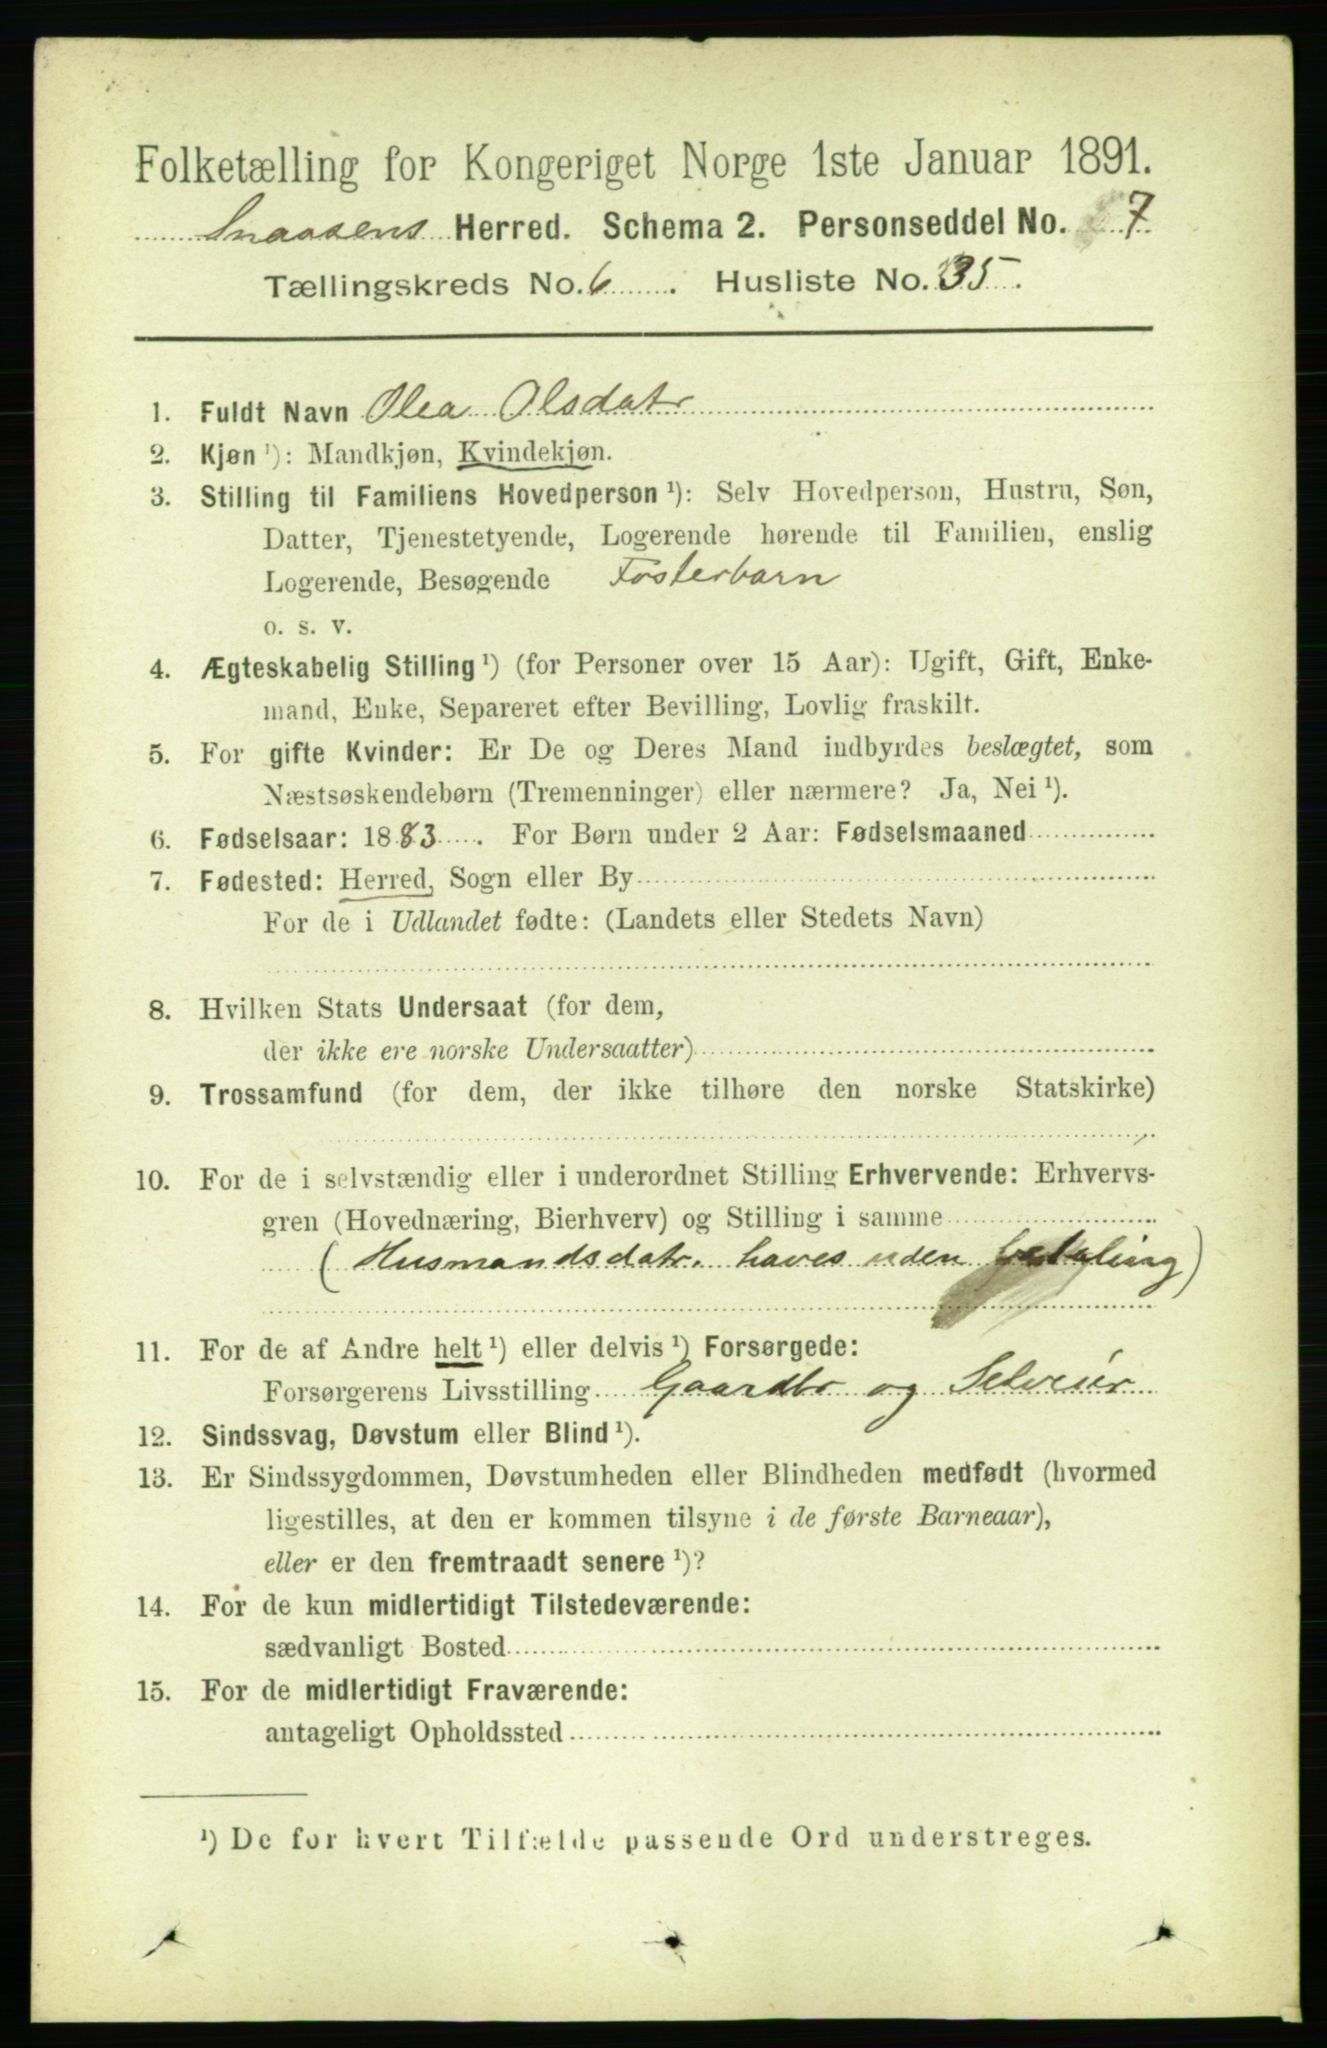 Folketælling for Kongeriget Norge 1ste Januar 1891.
Snaasens Herred. Schema 2. Personseddel No. 7
Tællingskreds No. 6. Husliste No. 35.
1. Fuldt Navn Olea Olsdatr
2. Kjøn ¹): Mandkjøn, Kvindekjøn.
3. Stilling til Familiens Hovedperson ¹): Selv Hovedperson, Hustru, Søn,
Datter, Tjenestetyende, Logerende hørende til Familien, enslig
Logerende, Besøgende Fosterbarn
o. s. v.
4. Ægteskabelig Stilling ¹) (for Personer over 15 Aar): Ugift, Gift, Enke-
mand, Enke, Separeret efter Bevilling, Lovlig fraskilt.
5. For gifte Kvinder: Er De og Deres Mand indbyrdes beslægtet, som
Næstsøskendebørn (Tremenninger) eller nærmere? Ja, Nei ¹).
6. Fødselsaar: 1883. For Børn under 2 Aar: Fødselsmaaned
7. Fødested: Herred, Sogn eller By
For de i Udlandet fødte: (Landets eller Stedets Navn)
8. Hvilken Stats Undersaat (for dem,
der ikke ere norske Undersaatter)
9. Trossamfund (for dem, der ikke tilhøre den norske Statskirke)
10. For de i selvstændig eller i underordnet Stilling Erhvervende: Erhvervs-
gren (Hovednæring, Bierhverv) og Stilling i samme
(Husmandsdatr. haves uden betaling)
11. For de af Andre helt ¹) eller delvis ¹) Forsørgede:
Forsørgerens Livsstilling Gaardbr og Selveier
12. Sindssvag, Døvstum eller Blind ¹).
13. Er Sindssygdommen, Døvstumheden eller Blindheden medfødt (hvormed
ligestilles, at den er kommen tilsyne i de første Barneaar),
eller er den fremtraadt senere ¹)?
14. For de kun midlertidigt Tilstedeværende:
sædvanligt Bosted
15. For de midlertidigt Fraværende:
antageligt Opholdssted
¹) De for hvert Tilfælde passende Ord understreges.